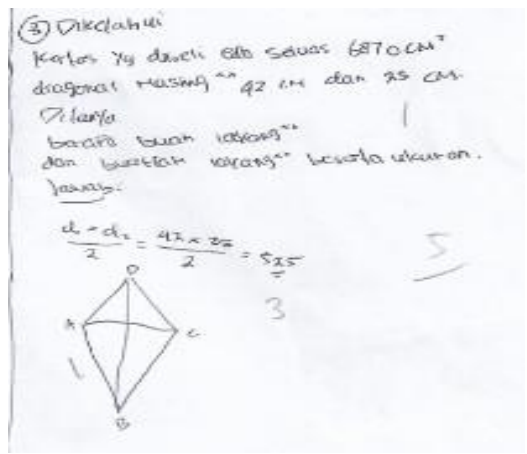 ③ Diketahui
Kertas yg dibeli edo seluas 6870 cm²
diagonal masing"" 42 cm dan 25 cm.
Ditanya
1
berapa buah layang""
dan buatlah layang"" beserta ukuran.
Jawab.
d₁ × d₂ / 2 = 42 × 25 / 2 = 525
5
D
3
A
C
1
B